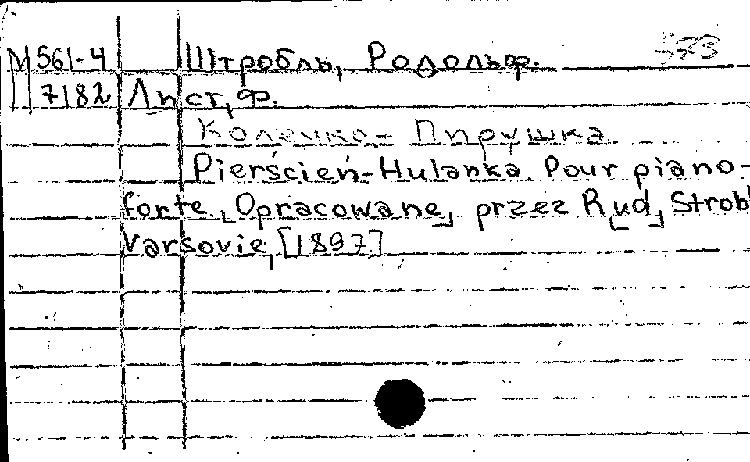 М561-4 Штробль, Родольф. 573
7182 Лист, Ф.
Колечко-Пирушка
Pierścień-Hulanka. Pour piano-
forte, Opracowane, przez R[ud, Strobl
Varsovie, [1897]